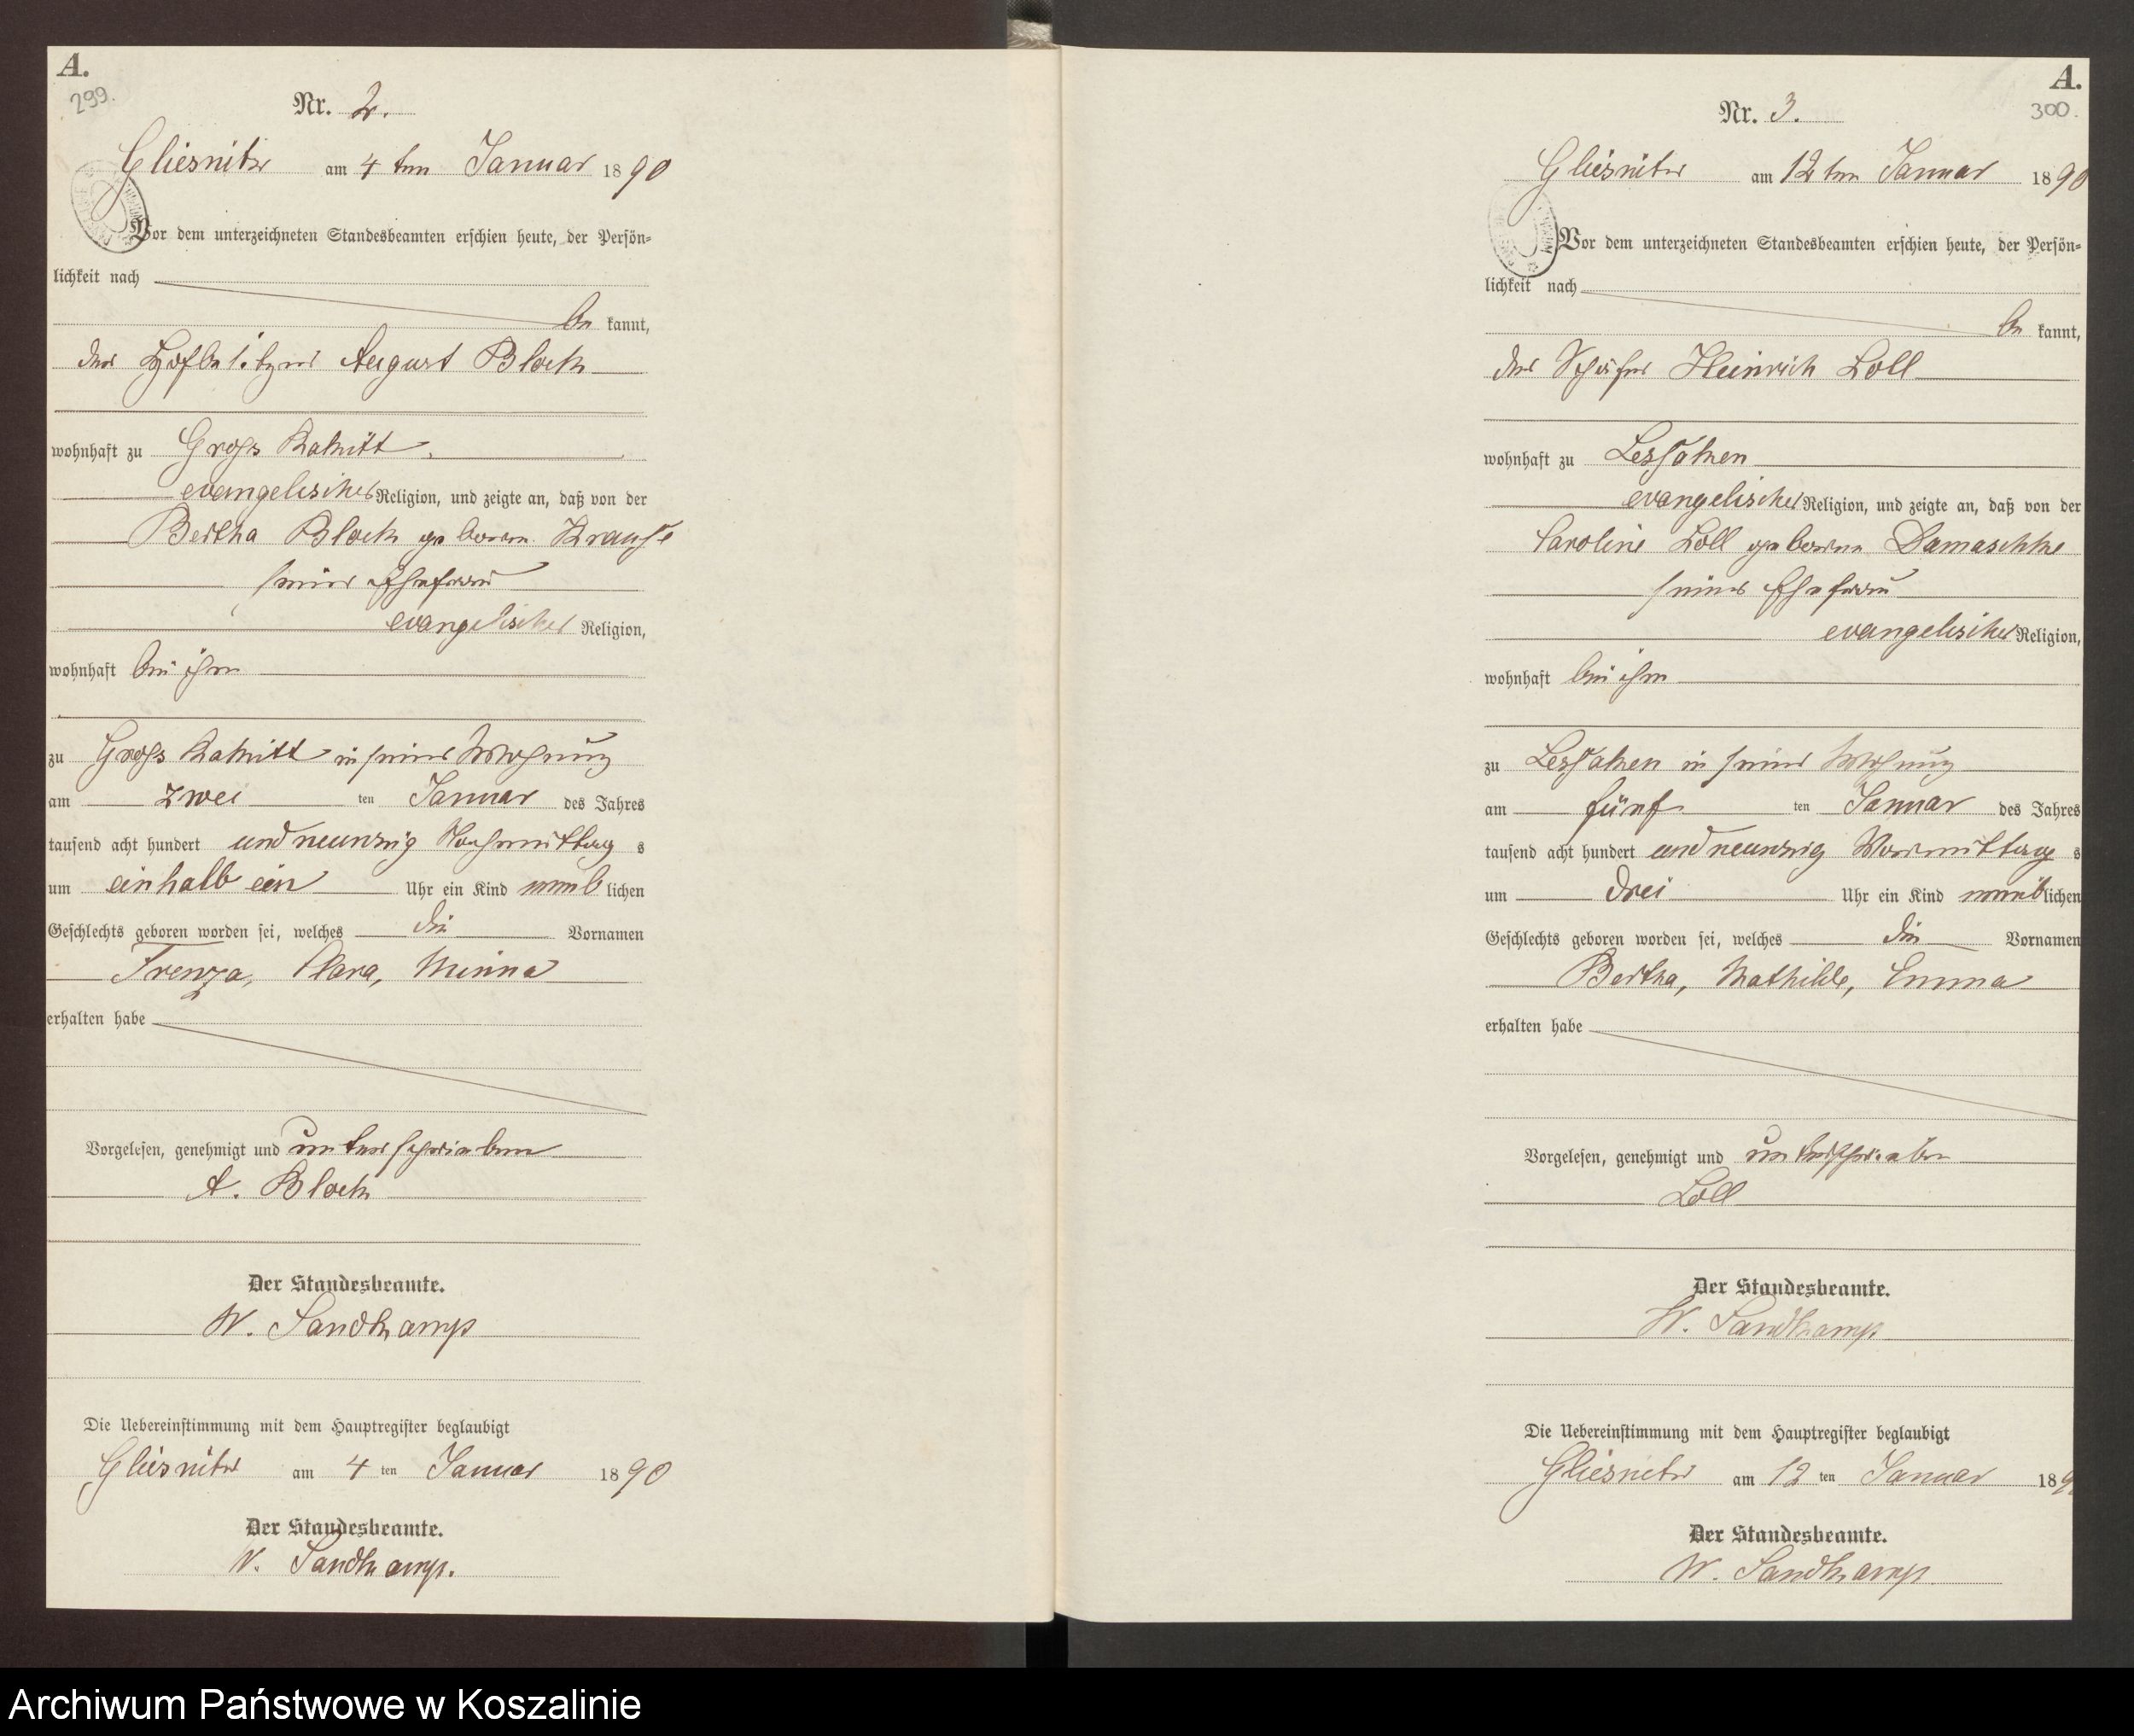 A.
299.
Nr. 2.
Gliesnitz am 4 ten Januar 1890
Vor dem unterzeichneten Standesbeamten erschien heute, der Persön=
lichkeit nach
be kannt,
der Hofbesitzer August Block
wohnhaft zu Gross Rakitt,
evangelischer Religion, und zeigte an, daß von der
Bertha Block geborne Krause
seiner Ehefrau
evangelischer Religion,
wohnhaft bei ihm
zu Gross Rakitt in seiner Wohnung
am zwei ten Januar des Jahres
tausend acht hundert und neunzig Nachmittag s
um einhalb ein Uhr ein Kind weib lichen
Geschlechts geboren worden sei, welches die Vornamen
Clara, Minna
erhalten habe
Vorgelesen, genehmigt und unterschrieben
A. Block
Der Standesbeamte.
W. Sandkamp
Die Uebereinstimmung mit dem Hauptregister beglaubigt
Gliesnitz am 4 ten Januar 1890
Der Standesbeamte.
W. Sandkamp.
A.
300.
Nr. 3.
Gliesnitz am 12 ten Januar 1890
Vor dem unterzeichneten Standesbeamten erschien heute, der Persön=
lichkeit nach
be kannt,
der Schäfer Heinrich Loll
wohnhaft zu Lessaken
evangelischer Religion, und zeigte an, daß von der
Caroline Loll geborne Damaschke
seiner Ehefrau
evangelischer Religion,
wohnhaft bei ihm
zu Lessaken in seiner Wohnung
am fünf ten Januar des Jahres
tausend acht hundert und neunzig Vormittag s
um drei Uhr ein Kind weiblichen
Geschlechts geboren worden sei, welches die Vornamen
Bertha, Mathilde, Emma
erhalten habe
Vorgelesen, genehmigt und unterschrieben
Loll
Der Standesbeamte.
W. Sandkamp.
Die Uebereinstimmung mit dem Hauptregister beglaubigt
Gliesnitz am 12 ten Januar 189
Der Standesbeamte.
W. Sandkamp.
Archiwum Państwowe w Koszalinie